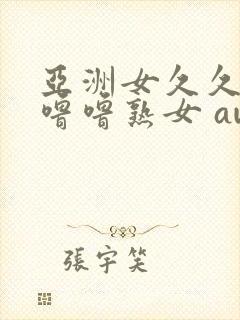 亞洲女久久
噜噜熟女 av
張宇笑